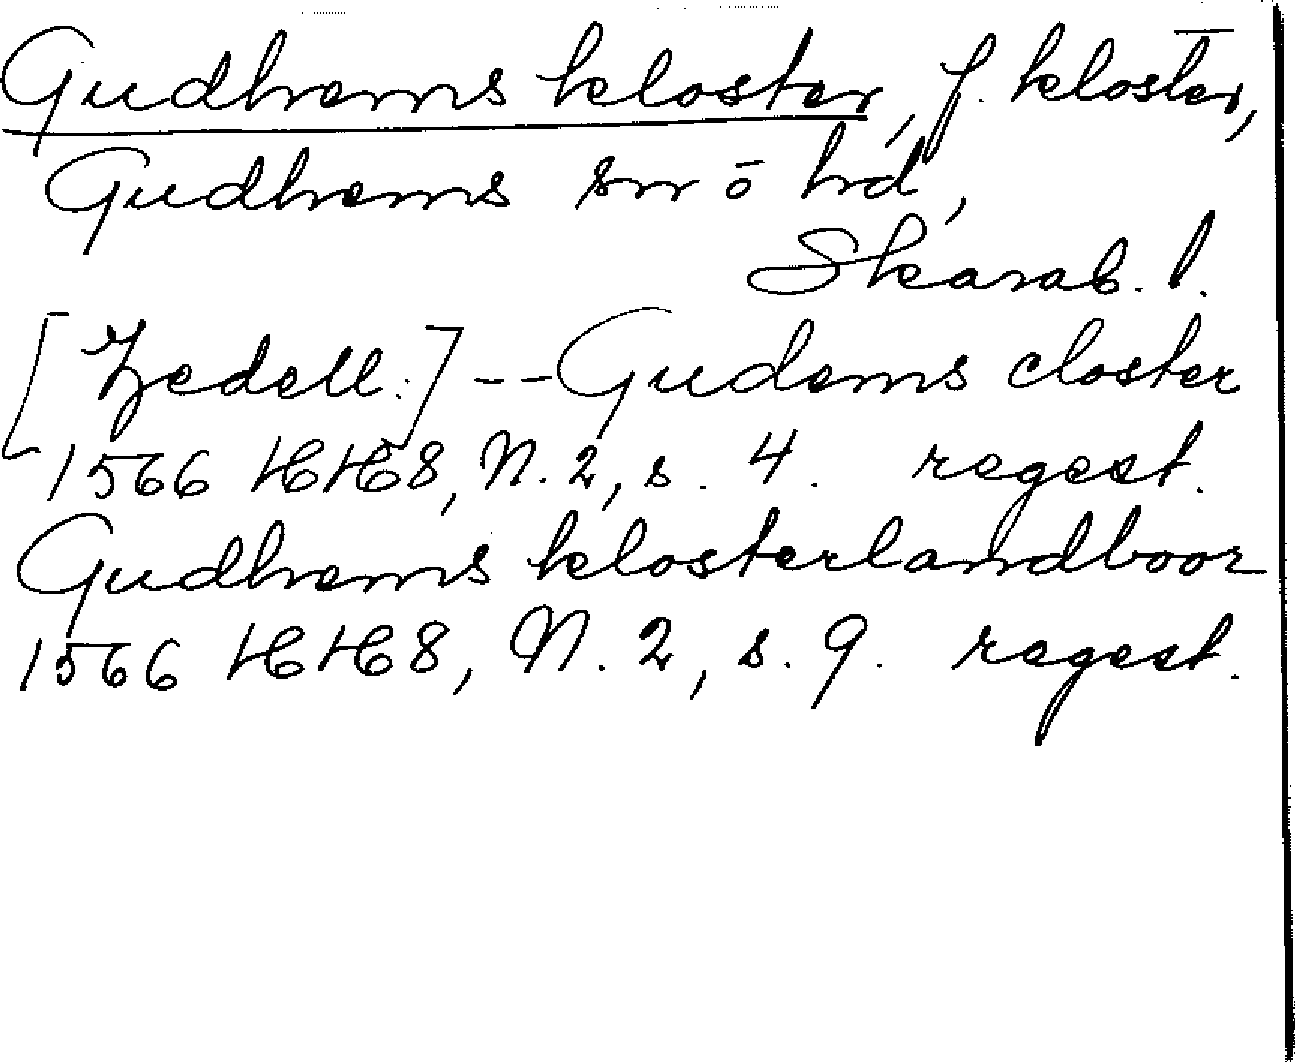 Gudhems kloster, f. kloster,
Gudhems sn o hd,
Skarab. l.
[Zedell.] -- Gudems closter
1566 HH 8, N. 2, s. 4. regest.
Gudhems klosterlandboor
1566 HH 8, N. 2, s. 9. regest.